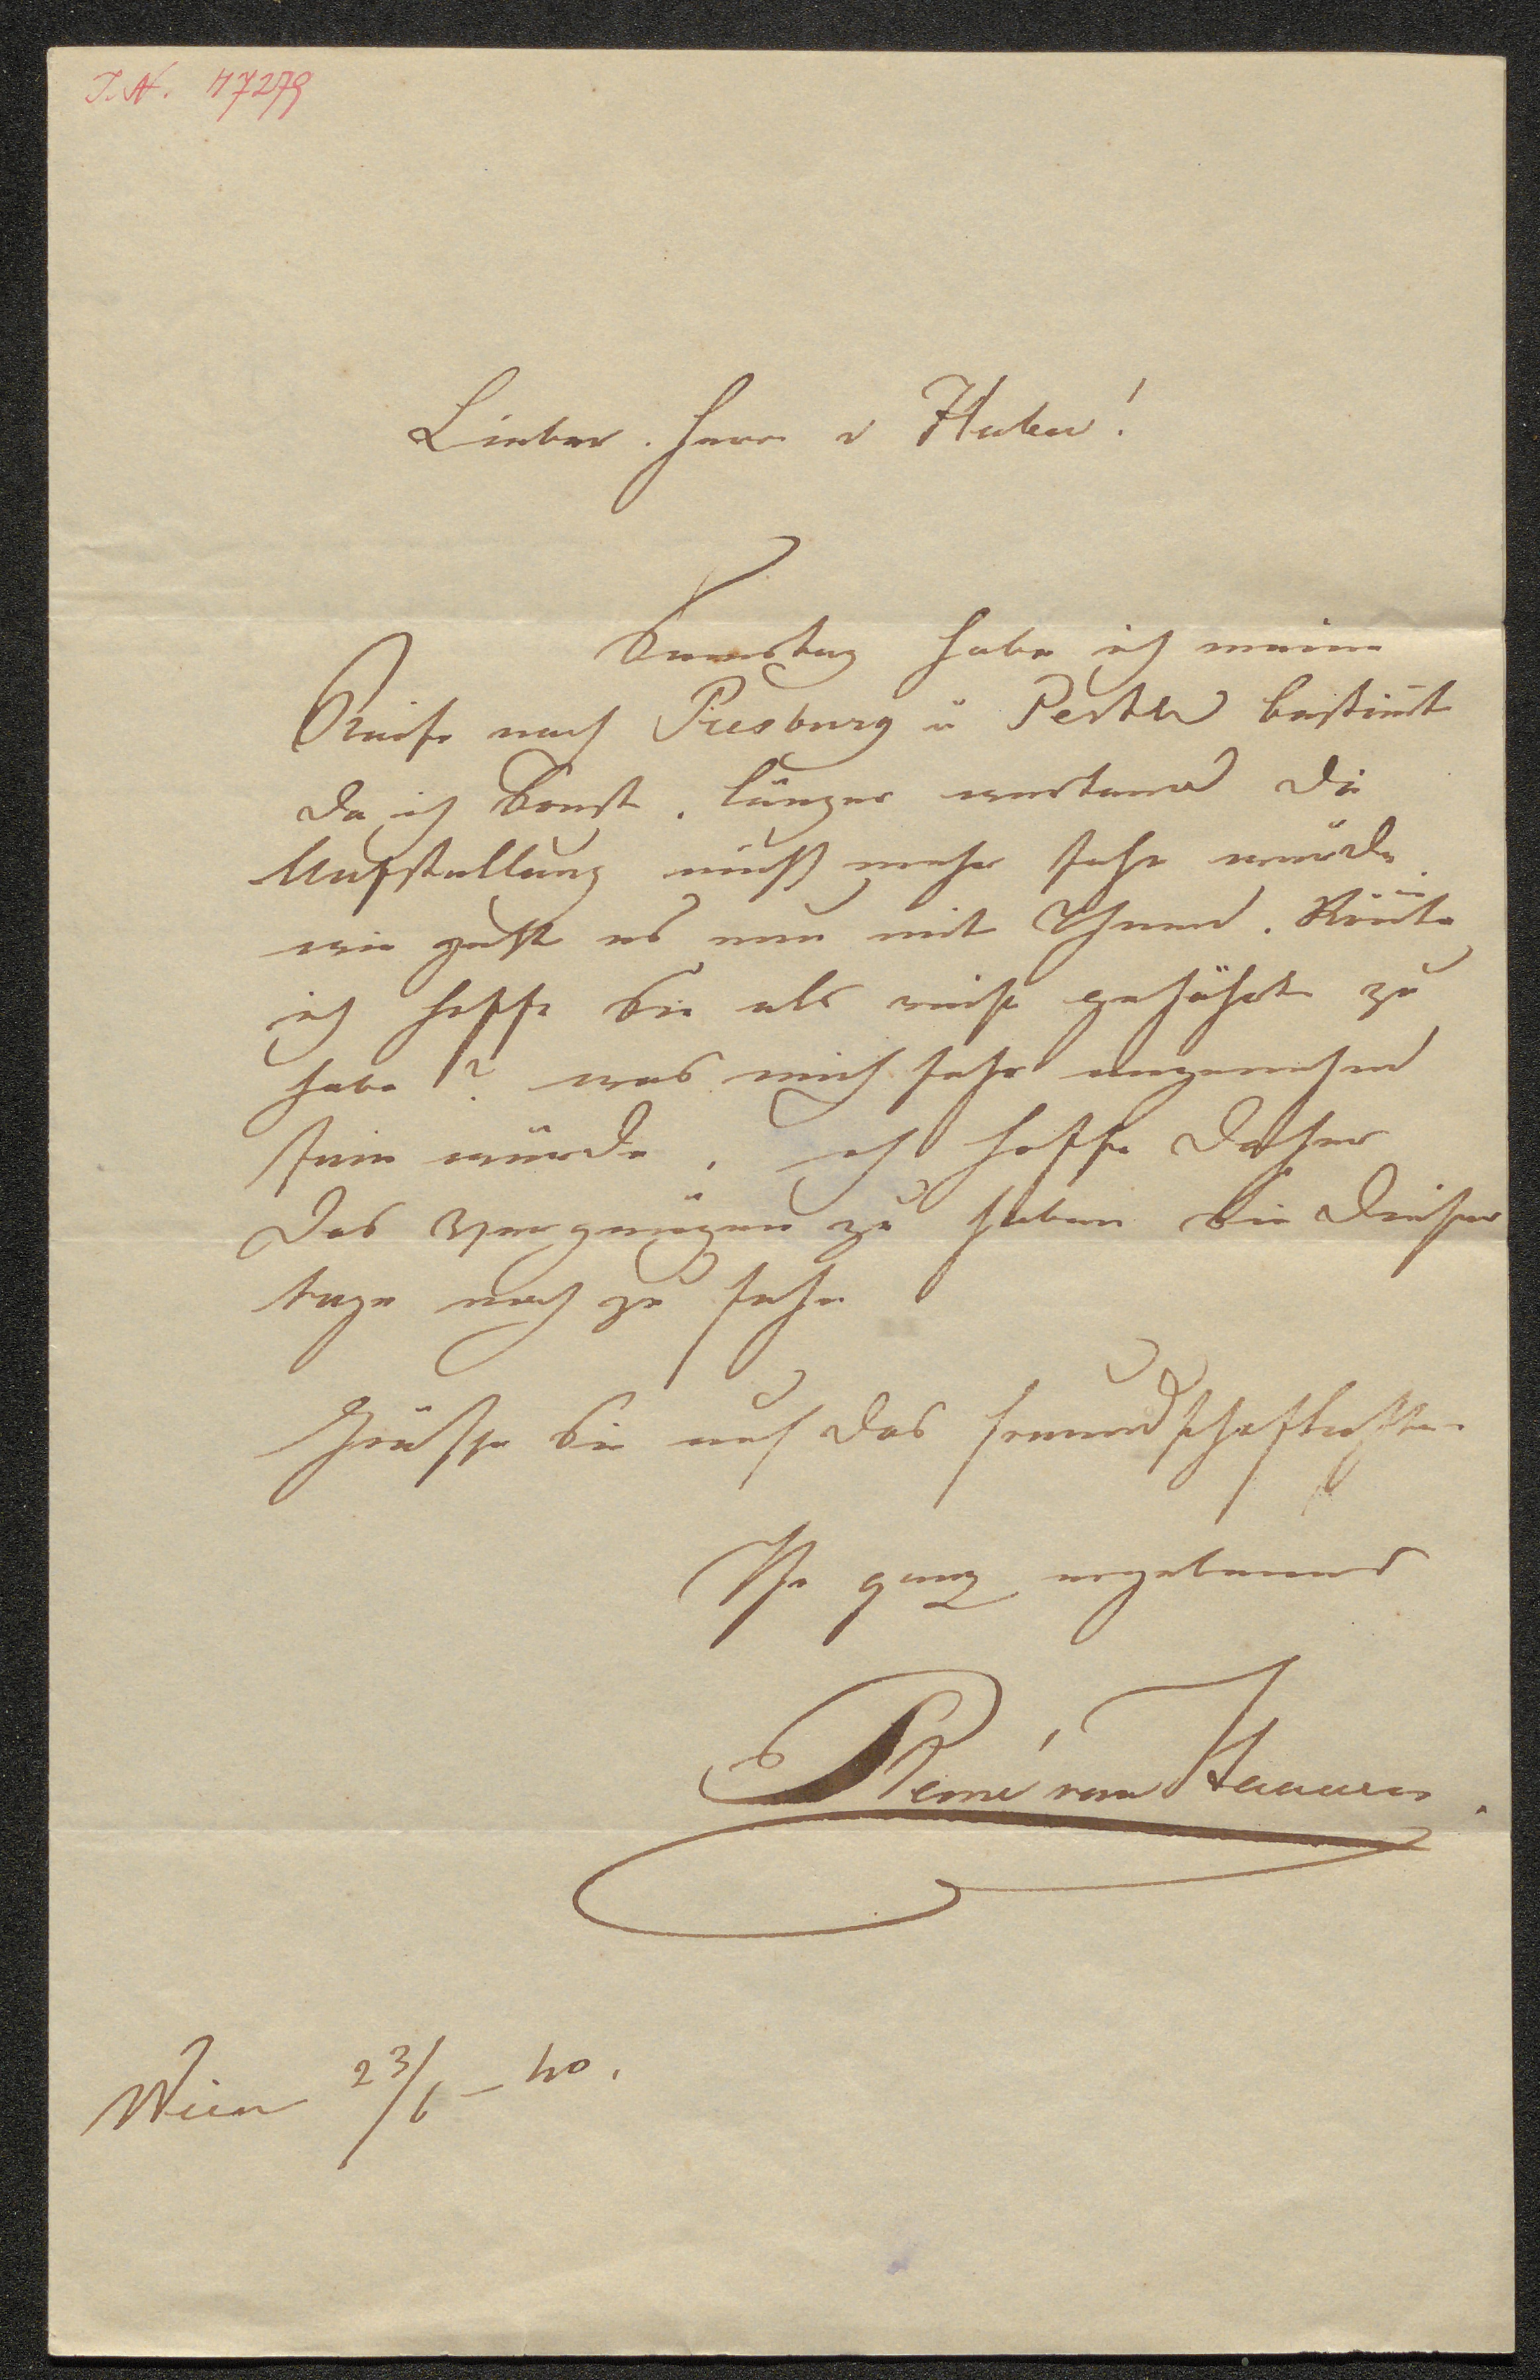 I. N. 47279
Lieber Herr v Huber!
Samstag habe ich meine
Reise nach Presburg u Pesth bestim̄t
da ich Sonst länger wartend die
Ausstellung nicht mehr sehe würde
wie geht es nun mit Ihnen. Kön̄te
ich hoffe Sie als reise gefährte zu
habe? was mich sehr angenehm
sein würde, ich hoffe daher
das vergnügen zu haben Sie dieser
tage noch zu sehe
Grüsse Sie auf das freundschaftlichste
Ihr ganz ergebener
Remi van Haanen.
Wien 23/6 – 40.